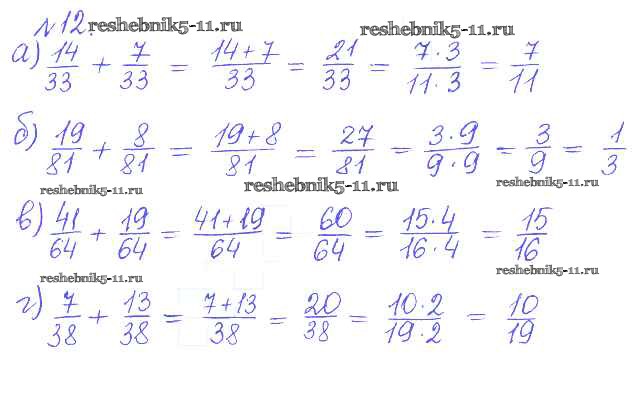 №12. reshebnik5-11.ru reshebnik5-11.ru
а) 14/33 + 7/33 = 14+7/33 = 21/33 = 7·3/11·3 = 7/11
б) 19/81 + 8/81 = 19+8/81 = 27/81 = 3·9/9·9 = 3/9 = 1/3
reshebnik5-11.ru reshebnik5-11.ru reshebnik5-11.ru
в) 41/64 + 19/64 = 41+19/64 = 60/64 = 15·4/16·4 = 15/16
reshebnik5-11.ru reshebnik5-11.ru
г) 7/38 + 13/38 = 7+13/38 = 20/38 = 10·2/19·2 = 10/19